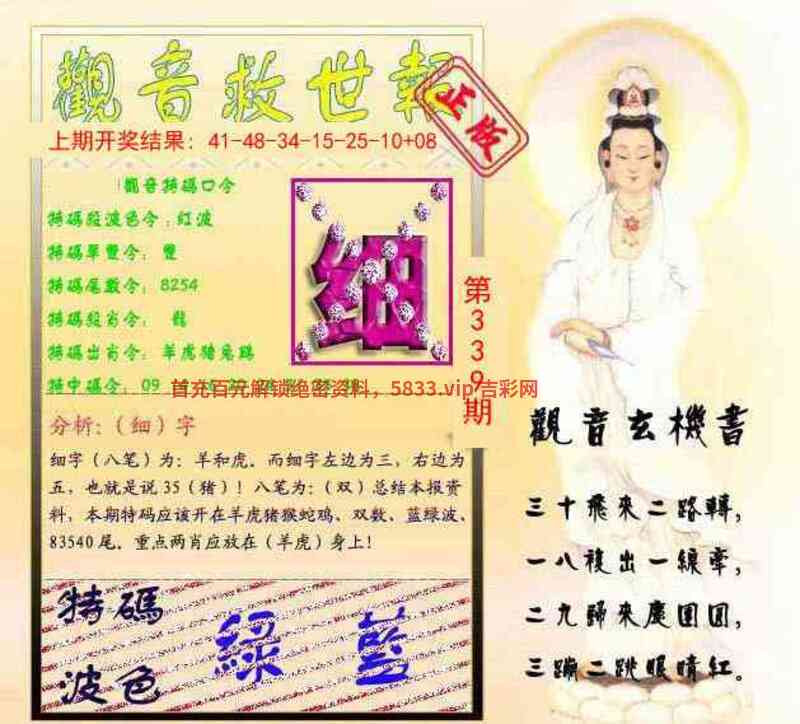 觀音救世報
正版
上期开奖结果：41-48-34-15-25-10+08
觀音特碼口令
特碼殺波色令：红波
特碼單雙令：雙
特碼尾數令：8254
特碼殺肖令：龍
特碼出肖令：羊虎猪兔鷄
特中碼令：09
首充百元解锁绝密资料，5833.vip 吉彩网
细
第339期
分析：（细）字
细字（八笔）为：羊和虎．而细字左边为三，右边为
五，也就是说35（猪）！八笔为：（双）总结本报资
料，本期特码应该开在羊虎猪猴蛇鸡、双数、蓝绿波、
83540尾．重点两肖应放在（羊虎）身上！
特碼
波色
綠 藍
觀音玄機書
三十飛來二路轉，
一八複出一線牽，
二九歸來慶團圓，
三蹦二跳眼睛紅。